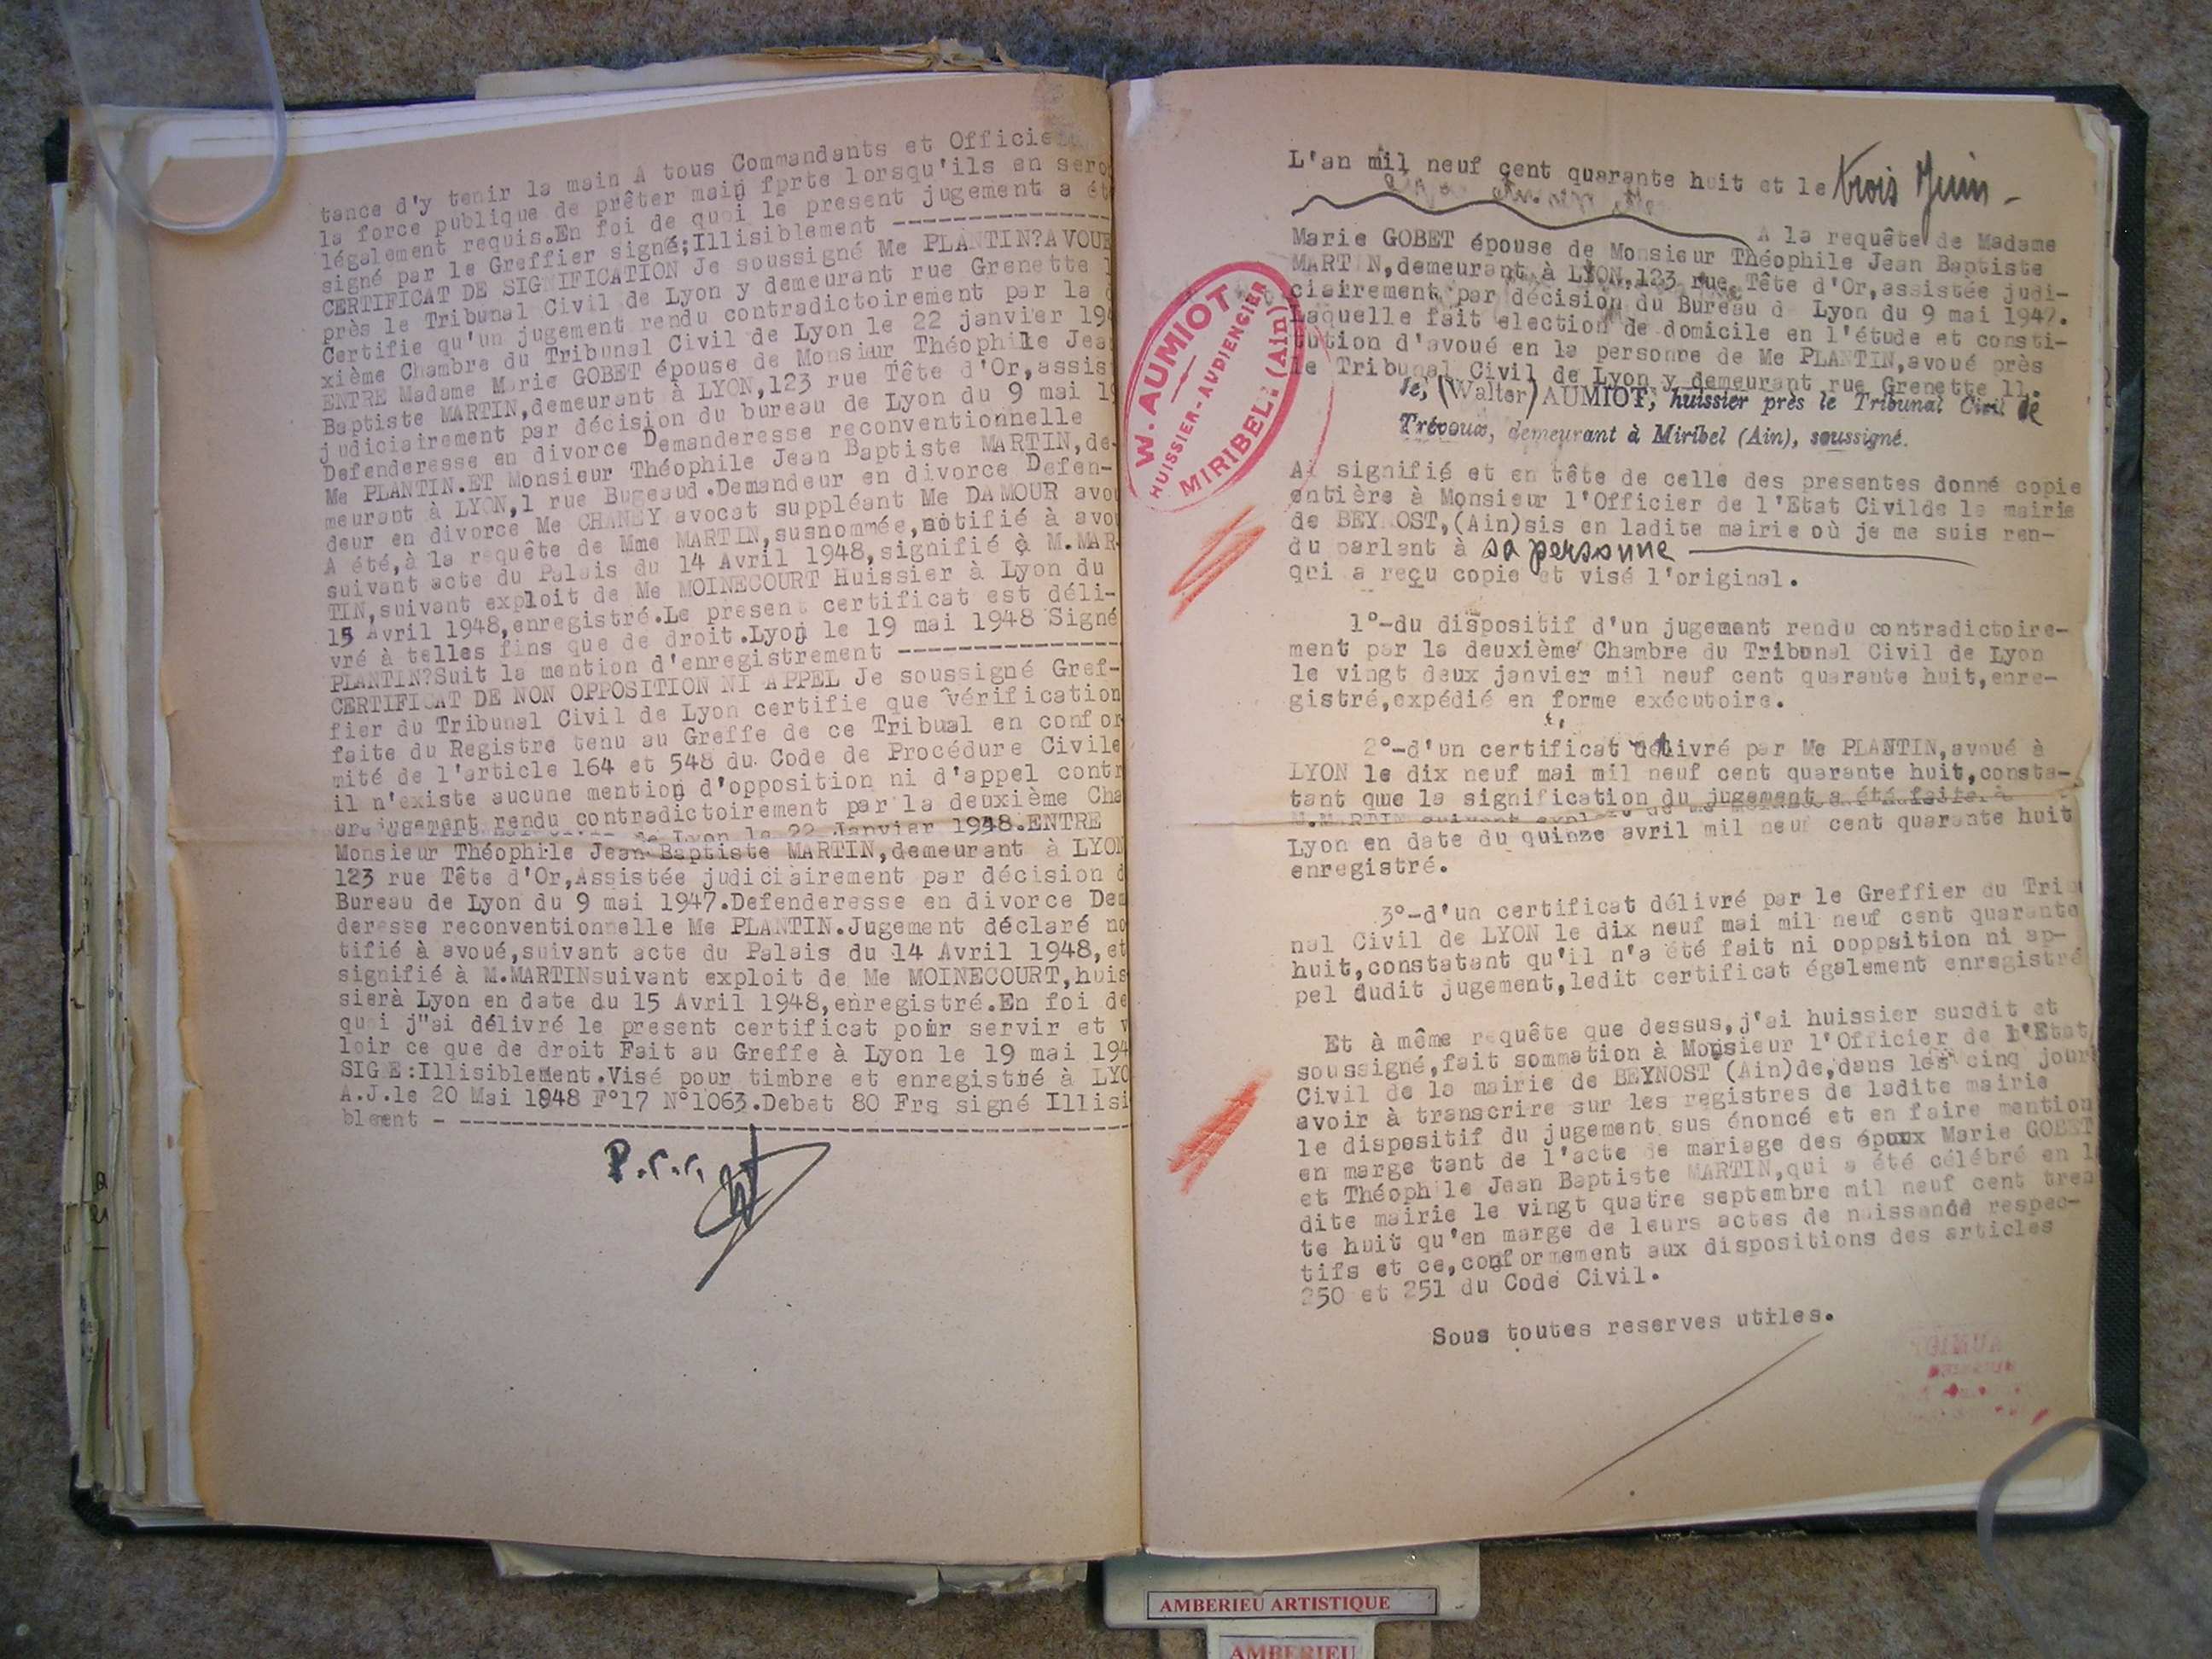 tance d'y tenir la main A tous Commandants et Officie
la force publique de prêter main forte lorsqu'ils en sero
légalement requis.En foi de quoi le present jugement a ét
signé par le Greffier signé;Illisiblement ---------------
CERTIFICAT DE SIGNIFICATION Je soussigné Me PLANTIN?AVOUE
près le Tribunal Civil de Lyon y demeurant rue Grenette 1
Certifie qu'un jugement rendu contradictoirement par la d
xième Chambre du Tribunal Civil de Lyon le 22 janvier 194
ENTRE Madame Marie GOBET épouse de Monsiaur Théophile Jea
Baptiste MARTIN,demeurant à LYON,123 rue Tête d'Or,assis
judiciairement par décision du bureau de Lyon du 9 mai 19
Defenderesse en divorce Demanderesse reconventionnelle
Me PLANTIN.ET Monsieur Théophile Jean Baptiste MARTIN,de-
meurant à LYON,1 rue Bugeaud.Demandeur en divorce Defen-
deur en divorce Me CHANEY avocat suppléant Me DAMOUR avou
A été,à la requête de Mme MARTIN,susnommée,notifié à avou
suivant acte du Palais du 14 Avril 1948,signifié à M.MAR-
TIN,suivant exploit de Me MOINECOURT Huissier à Lyon du
15 Avril 1948,enregistré.Le present certificat est déli-
vré à telles fins que de droit.Lyon le 19 mai 1948 Signé
PLANTIN?Suit la mention d'enregistrement ---------------
CERTIFICAT DE NON OPPOSITION NI APPEL Je soussigné Gref-
fier du Tribunal Civil de Lyon certifie que vérification
faite du Registre tenu au Greffe de ce Tribual en confor
mité de l'article 164 et 548 du Code de Procédure Civile
il n'existe aucune mention d'opposition ni d'appel contr
jugement rendu contradictoirement par la deuxième Cha
de Lyon le 22 Janvier 1948.ENTRE
Monsieur Théophile Jean Baptiste MARTIN,demeurant à LYON
123 rue Tête d'Or,Assistée judiciairement par décision d
Bureau de Lyon du 9 mai 1947.Defenderesse en divorce Dem
deresse reconventionnelle Me PLANTIN.Jugement déclaré no
tifié à avoué,suivant acte du Palais du 14 Avril 1948,et
signifié à M.MARTINsuivant exploit de Me MOINECOURT,huis
sierà Lyon en date du 15 Avril 1948,enregistré.En foi de
quoi j"ai délivré le present certificat pour servir et v
loir ce que de droit Fait au Greffe à Lyon le 19 mai 194
SIGE:Illisiblement.Visé pour timbre et enregistré à LYO
A.J.le 20 Mai 1948 F°17 N°1063.Debet 80 Frs signé Illisi
blement - ---------------
P.c.c.
L'an mil neuf cent quarante huit et le trois Juin -
A la requête de Madame
Marie GOBET épouse de Monsieur Théophile Jean Baptiste
MARTIN,demeurant à LYON,123 rue Tête d'Or,assistée judi-
ciairement par décision du Bureau de Lyon du 9 mai 1947.
Laquelle fait election de domicile en l'étude et consti-
tution d'avoué en la personne de Me PLANTIN,avoué près
le Tribunal Civil de Lyon y demeurant rue Grenette 11.
Je, (Walter) AUMIOT, huissier près le Tribunal Civil de
Trévoux, demeurant à Miribel (Ain), soussigné.
W. AUMIOT
HUISSIER-AUDIENCIER
MIRIBEL (Ain)
Ai signifié et en tête de celle des presentes donné copie
entière à Monsieur l'Officier de l'Etat Civilde la mairie
de BEYNOST,(Ain)sis en ladite mairie où je me suis ren-
du parlant à sa personne
qui a reçu copie et visé l'original.
1°-du dispositif d'un jugement rendu contradictoire-
ment par la deuxième Chambre du Tribunal Civil de Lyon
le vingt deux janvier mil neuf cent quarante huit,enre-
gistré,expédié en forme exécutoire.
2°-d'un certificat délivré par Me PLANTIN,avoué à
LYON le dix neuf mai mil neuf cent quarante huit,consta-
tant que la signification du jugement a été faite à
M.MARTIN suivant exploit de Me
Lyon en date du quinze avril mil neuf cent quarante huit
enregistré.
3°-d'un certificat délivré par le Greffier du Tribu
nal Civil de LYON le dix neuf mai mil neuf cent quarante
huit,constatant qu'il n'a été fait ni oopposition ni ap-
pel dudit jugement,ledit certificat également enregistré
Et à même requête que dessus,j'ai huissier susdit et
soussigné,fait sommation à Monsieur l'Officier de l'Etat
Civil de la mairie de BEYNOST (Ain)de,dans les cinq jours
avoir à transcrire sur les registres de ladite mairie
le dispositif du jugement sus énoncé et en faire mention
en marge tant de l'acte de mariage des époux Marie GOBET
et Théophile Jean Baptiste MARTIN,qui a été célébré en la
dite mairie le vingt quatre septembre mil neuf cent tren
te huit qu'en marge de leurs actes de naissance respec-
tifs et ce,conformement aux dispositions des articles
250 et 251 du Code Civil.
Sous toutes reserves utiles.
AMBERIEU ARTISTIQUE
AMBERIEU